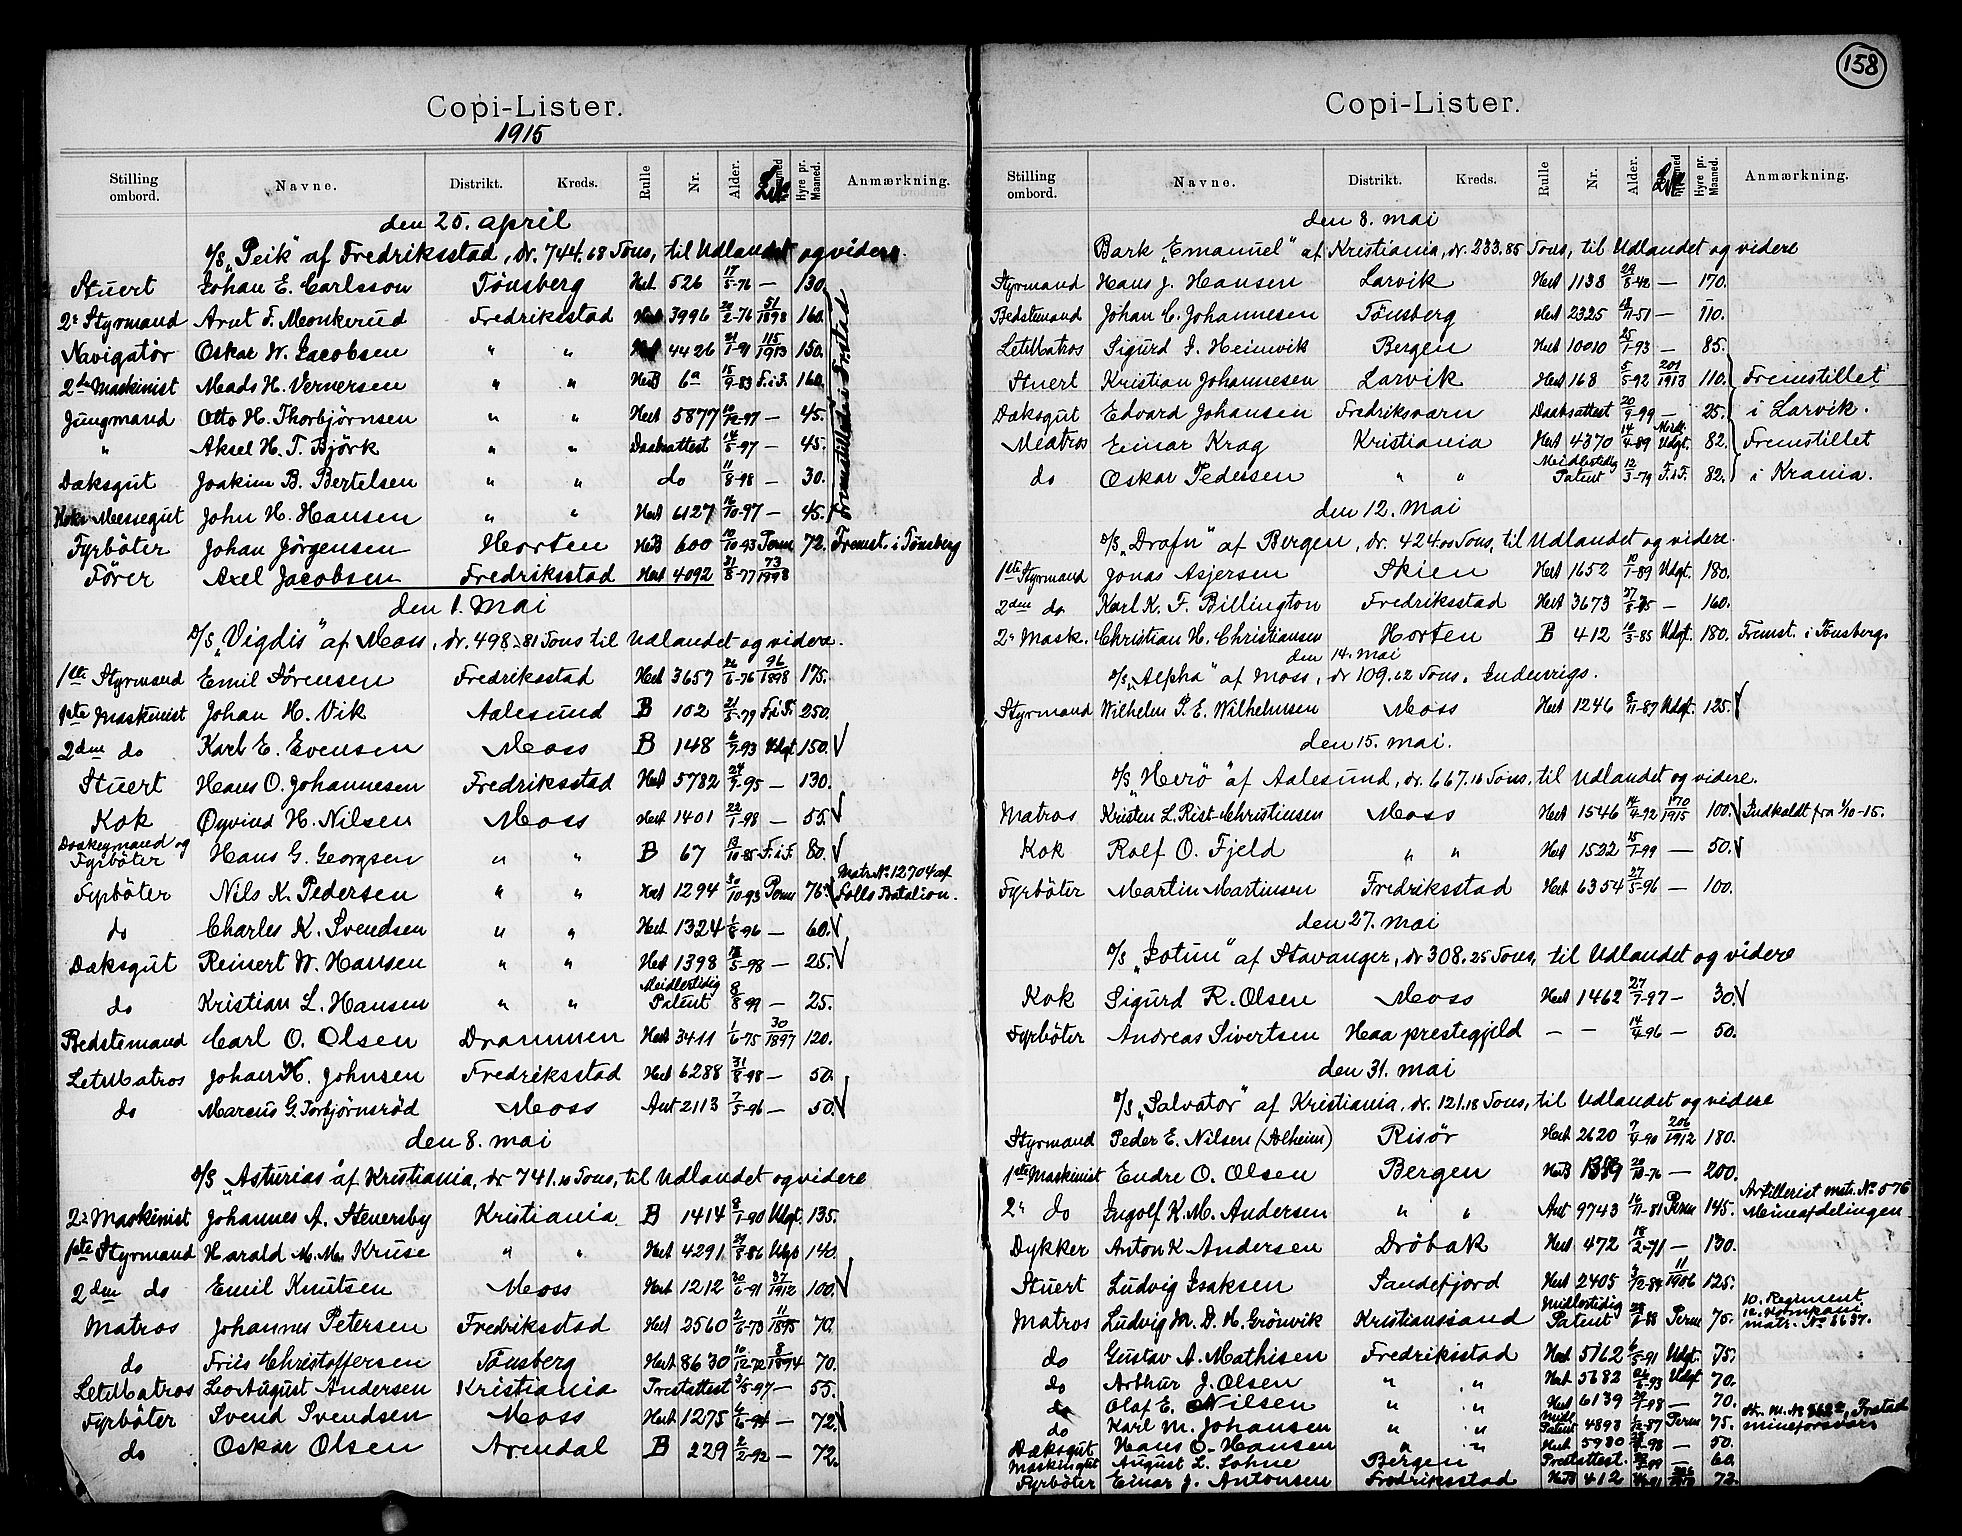 Copi-Lister.
1915
Stilling ombord. Navne. Distrikt. Kreds. Rulle Nr. Alder. Hyre pr. Maaned. Anmærkning.
den 25. april
S/S „Peik“ af Fredriksstad, dr. 744.68 Tons, til Udlandet og videre.
Stuert Johan E. Carlsson Tönsberg Hert 526 17/5-76 — 130.
2n Styrmand Arnt F. Monkerud Fredriksstad Hert 3996 20/2-76 51/1898 160.
Navigatör Oskar W. Jacobsen " " 4426 21/1-91 115/1913 150.
2den Maskinist Mads H. Vernersen " " HertB 6a 15/9-83 F.i.F. 160.
Jungmand Otto H. Thorbjørnsen " " Hert 5877 10/12-97 — 45.
" Aksel H. T. Björk " " Daabsattest 14/5-97 — 45.
Dæksgut Joakim B. Bertelsen " " do 11/8-98 — 30.
Koks Messegut John H. Hansen " " Hert 6127 16/10-97 — 45.
Fremstillede i Fr.stad
Fyrböter Johan Jörgensen Horten HertB 600 10/10-93 Perm 72. Fremst. i Tönsberg
Förer Axel Jacobsen Fredriksstad Hert 4092 31/8-77 73/1998
den 1. Mai
D/S „Vigdis“ af Moss, dr. 498.81 Tons til Udlandet og videre.
1ste Styrmand Emil Sörensen Fredriksstad Hert 3657 26/6-76 96/1898 175.
1ste Maskinist Johan H. Vik Aalesund B 102 21/5-79 F.i.F. 250.
2den do Karl E. Evensen Moss B 148 6/7-93 Udgt. 150.
Stuert Hans O. Johannesen Fredriksstad Hert 5782 24/9-95 — 130.
Kok Øyvind H. Nilsen Moss Hert 1401 22/1-98 — 55.
Donkeymand og Fyrböter Hans G. Georgsen " " B 67 19/10-85 F.i.F. 80.
Fyrböter Nils K. Pedersen " " Hert 1294 30/10-93 Perm 76. Matr. No 12704 af Follo Batalion.
do Charles K. Svendsen " " Hert 1324 1/8-96 — 60.
Dæksgut Reinert W. Hansen " " Hert 1398 18/5-98 — 25.
do Kristian L. Hansen " " Meidlertidig Patent 9/8-99 — 25.
Bedstemand Carl O. Olsen Drammen Hert 3411 1/6-75 30/1897 120.
LetMatros Johan K. Johnsen Fredriksstad Hert 6288 31/8-98 — 50.
do Marcus G. Torbjørnsröd Moss Ant 2113 7/5-96 — 50.
den 8. mai
S/S „Asturias“ af Kristiania, dr 741.10 Tons, til Udlandet og videre
2n Maskinist Johannes A. Stenersby Kristiania B 1414 8/1-90 Udgt. 135.
1ste Styrmand Harald M. M. Kruse " " Hert 4291 29/8-86 Udgt 140.
2den do Emil Knutsen Moss Hert 1212 30/6-91 37/1912 100.
Matros Johannes Petersen Fredriksstad Hert 2560 2/6-73 11/1895 70.
do Friis Christoffersen Tönsberg Hert 8630 10/12-72 8/1894 70.
LetMatros Leo August Andersen Kristiania Prestattest 3/5-97 — 55.
Fyrböter Svend Svendsen Moss Hert 1275 6/6-94 — 72.
do Oskar Olsen Arendal B 229 2/2-92 — 72.
158
Copi-Lister.
Stilling ombord. Navne. Distrikt. Kreds. Rulle Nr. Alder. Hyre pr. Maaned. Anmærkning.
den 8. mai
Bark „Emanuel“ af Kristiania, dr. 233.85 Tons, til Udlandet og videre
Styrmand Hans J. Hansen Larvik Hert 1138 29/8-42 — 170.
Bedstemand Johan C. Johannesen Tönsberg Hert 2325 18/11-51 — 110.
LetMatros Sigurd J. Heimvik Bergen Hert 10010 25/1-93 — 85.
Stuert Kristian Johannesen Larvik Hert 168 5/5-92 201/1913 110. Fremstillet
Dæksgut Edvard Johansen Fredriksværn Daabsattest 20/9-99 — 25. i Larvik.
Matros Einar Krag Kristiania Hert 4370 14/4-89 Udgt. 82. Fremstillet
do Oskar Pedersen " " Meidlertidig Patent 12/3-79 F.i.F. 82. i Krania.
den 12. Mai
S/S „Drafn“ af Bergen, dr. 424.00 Tons, til Udlandet og videre.
1ste Styrmand Jonas Asjersen Skien Hert 1652 10/1-89 Udgt. 180.
2den do Karl K. F. Billington Fredriksstad Hert 3673 27/8-75 — 160.
2n Mask. Christian H. Christiansen Horten B 412 10/3-85 Udgt. 180. Fremst. i Tönsberg.
den 14. mai
S/S „Alpha“ af Moss, dr 109.62 Tons. Indenrigs.
Styrmand Wilhelm P. E. Wilhelmsen Moss Hert 1246 8/11-87 Udgt. 125.
den 15. mai.
S/S „Herö“ af Aalesund, dr. 667.16 Tons, til Udlandet og videre.
Matros Kristen L. Rist-Christiansen Moss Hert 1546 14/4-92 170/1915 100. Indkaldt fra 1/10-15.
Kok Rolf O. Fjeld " " Hert 1522 15/1-99 — 50.
Fyrböter Martin Martinsen Fredriksstad Hert 6354 27/5-96 — 100.
den 27. mai
S/S „Jotun“ af Stavanger, dr 308.25 Tons, til Udlandet og videre
Kok Sigurd R. Olsen Moss Hert 1462 27/7-97 — 30.
Fyrböter Andreas Sivertsen Haa prestegjeld — — 14/4-96 — 50.
den 31. mai
S/S „Salvatör“ af Kristiania, dr. 121.18 Tons, til Udlandet og videre
Styrmand Peder E. Nilsen (Solheim) Risör Hert 2620 7/4-90 206/1912 180.
1ste Maskinist Endre O. Olsen Bergen HertB 20/10-76 — 200.
2n do Ingolf K. M. Andersen " " Ant 9743 16/11-81 Perm 145. Artillerist mtr. No 576 Mineafdelingen
Dykker Anton K Andersen Dröbak Hert 472 18/2-71 — 130.
Stuert Ludvig Isaksen Sandefjord Hert 2405 3/12-84 11/1906 125.
Matros Ludvig M. D. H. Grönvik Kristianssand Midlertidig Patent 28/9-88 Perm 75. 10. Regiment 12. Kompani matr. No 5637.
do Gustav A. Mathisen Fredriksstad Hert 5162 6/5-91 Udgt. 75.
do Arthur J. Olsen " " Hert 5682 Udgt 70.
do Olaf E. Nilsen " " Hert 6139 29/7-98 — 70.
do Karl M. Johansen " " Midl. Patent 4893 1/12-87 Perm 75. mineforsvar
Dæksgut Hans O. Hansen " " Hert 5980 — 50.
Maskingut August L. Lohne Bergen Prestattest. — 60.
Fyrböter Einar J. Antonsen Fredriksstad HertB 412 72.